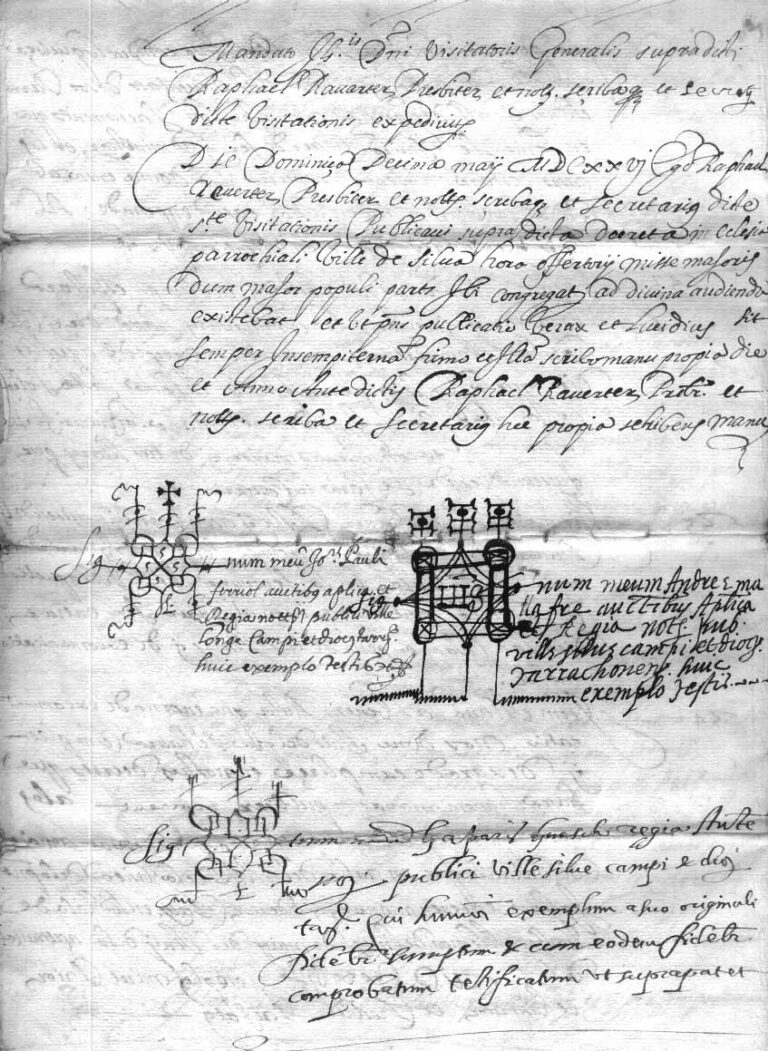 Mandato Ill.is Dni Visitatoris Generalis supradicti
Raphael Raverter Presbiter et nots. scriba et
dicte Visitationis expedivit
Die Dominico Decima maij MDCxxvj Ego Raphael
Raverter Presbiter et nots. scriba et secretariq dicte
s.te Visitationis Publicavi supradicta decreta in eclesia
parrochiali Ville de Silva hora offertorij misse majoris
dum major populi pars Ibi congregat ad divina audienda
existebat et ut pns publicatio verax et Lucidius sit
semper Insempiterna firmo et Illa scribo manu propia die
et Anno Antedictis Raphael Raverter Prbr. et
nots. scriba et secretariq hec propia schibens manu
Sig num meu Jo.is Pauli
ferriol auctibq aplica et
Regia notts publici ville
longe Campi et dioc
huic exemplo Testis
Sig num meum Andree ma
llafre auctibus Aplica
et Regia nots pub.
ville campi et dioc.
Tarrachonens. huic
exemplo Testis
Sig num Gasparis regia Aucte
publici Ville silve campi & dio
Qui hummoi exemplum a suo originali
fideltr sumptum & cum eodem fideltr
comprobatum testificatum ut supra patet